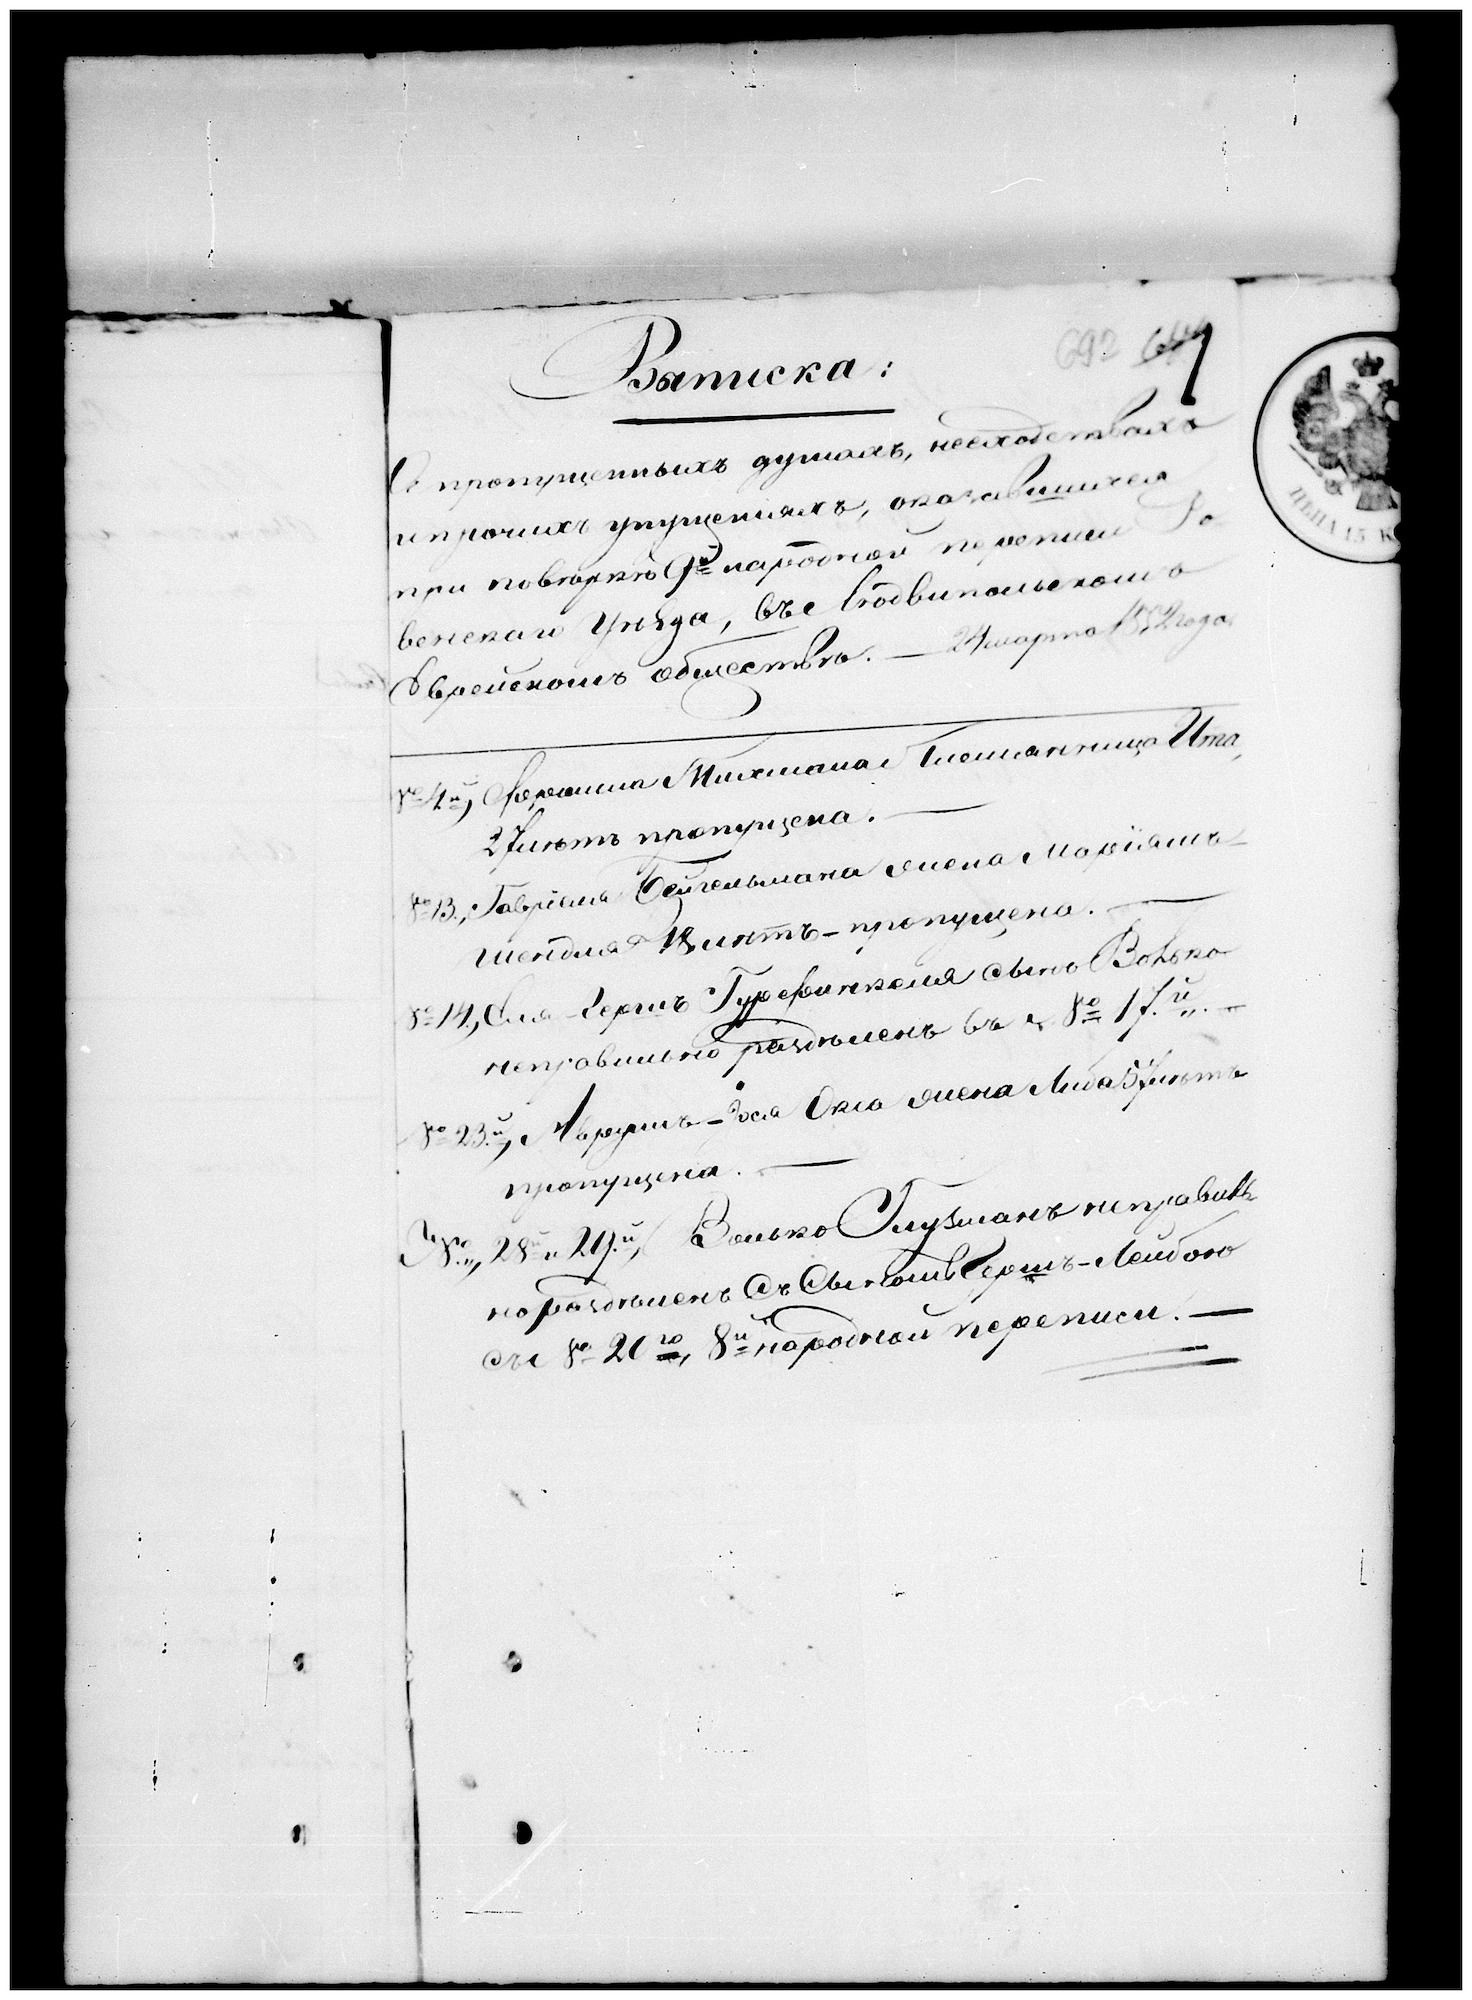 692
Выписка:
О пропущенныхъ душахъ, несходствахъ
и прочихъ упущеніяхъ, оказавшихся
при повѣркѣ 9й народной переписи Ро-
венскаго Уѣзда, въ Людвипольскомъ
Еврейскомъ обществѣ. — 24 марта 1852 года
№ 4й, Племянница Ита,
27 лѣтъ пропущена. —
№ 13., Гавріила Бейгельмана жена Маріямъ-
Шейдля 18 лѣтъ - пропущена. —
№ 14, Эля-Гершъ Гурфинкеля сынъ Волько
неправильно раздѣленъ въ № 17.й. —
№ 23.й, жена Либа 57 лѣтъ
пропущена. —
№№, 28й и 29.й, Волько Глузманъ неправиль
но раздѣленъ съ сыномъ Гершъ-Лейбою
съ № 20го, 8й народной переписи. —
ЦѢНА 15 К